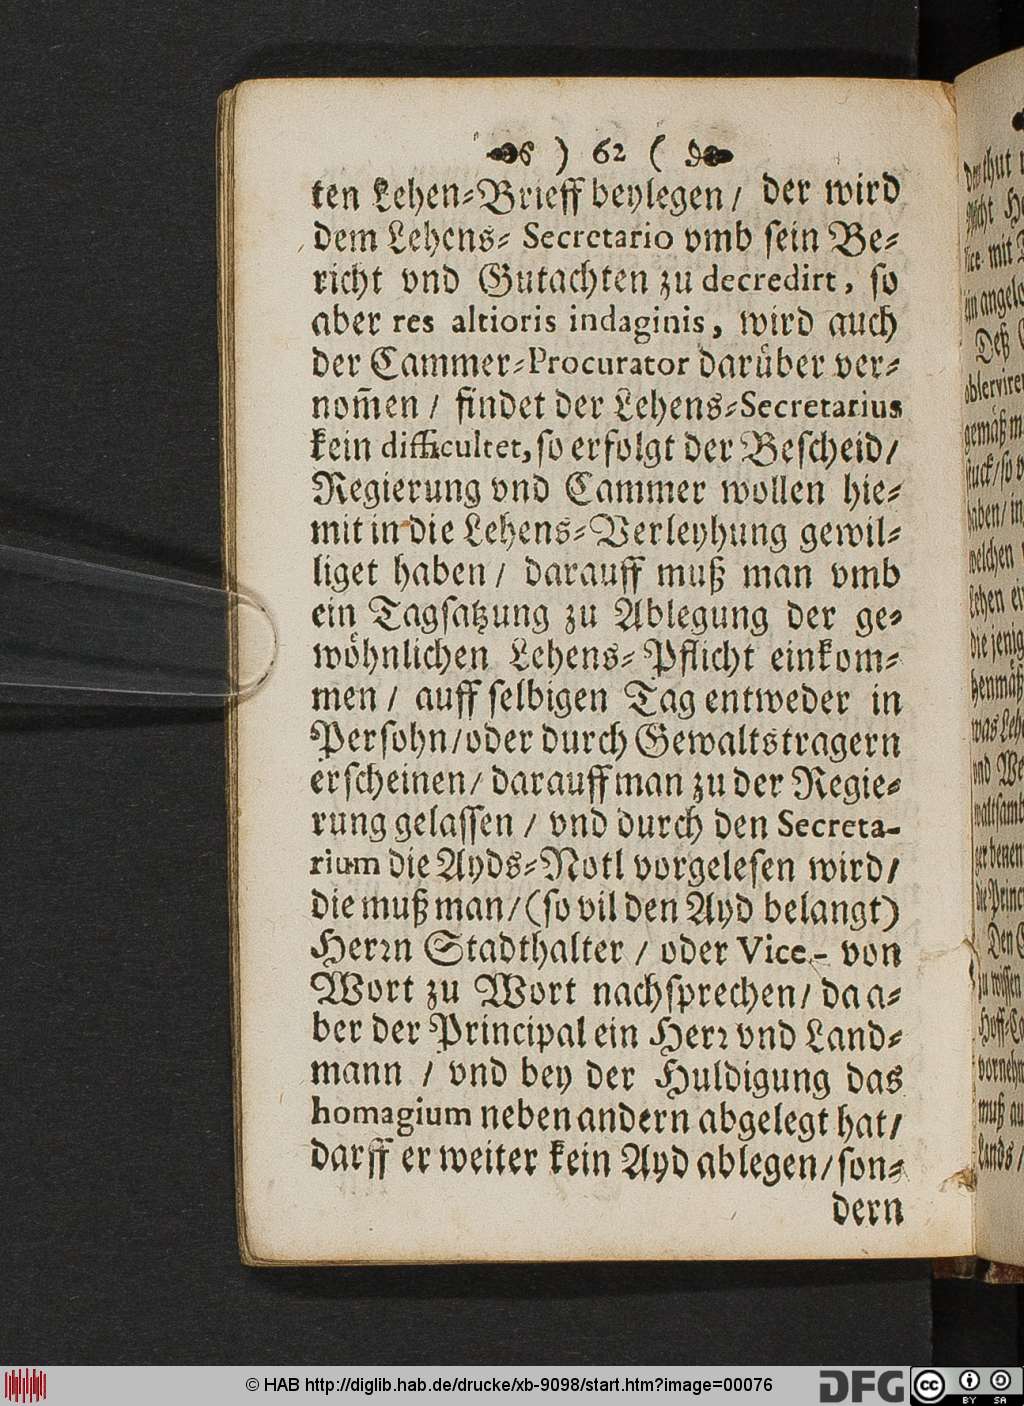 ) 62 (
ten Lehen-Brieff beylegen / der wird
dem Lehens- Secretario vmb sein Be-
richt vnd Gutachten zu decredirt, so
aber res altioris indaginis, wird auch
der Cammer-Procurator darüber ver-
nom̄en / findet der Lehens-Secretarius
kein difficultet, so erfolgt der Bescheid /
Regierung vnd Cammer wollen hie-
mit in die Lehens-Verleyhung gewil-
liget haben / darauff muß man vmb
ein Tagsatzung zu Ablegung der ge-
wöhnlichen Lehens-Pflicht einkom-
men / auff selbigen Tag entweder in
Persohn / oder durch Gewaltstragern
erscheinen / darauff man zu der Regie-
rung gelassen / vnd durch den Secreta-
rium die Ayds-Notl vorgelesen wird /
die muß man / (so vil den Ayd belangt)
Herrn Stadthalter / oder Vice- von
Wort zu Wort nachsprechen / da a-
ber der Principal ein Herr vnd Land-
mann / vnd bey der Huldigung das
homagium neben andern abgelegt hat /
darff er weiter kein Ayd ablegen / son-
dern
thut
mit
Deß
gemäß
haben / in
welchen
Lehen
die jenig
was Lehe
vnd We
die Princ
Den
zu wissen
muß au
Lands /
© HAB http://diglib.hab.de/drucke/xb-9098/start.htm?image=00076
DFG
cc
BY SA